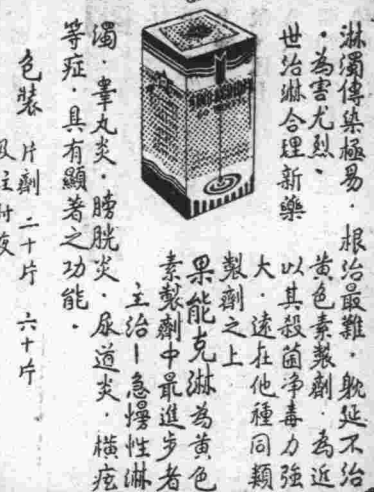 淋濁傳染極易．根治最難．躭延不治
．為害尤烈．黃色素製劑．為近
世治淋合理新藥 以其殺菌淨毒力強
大．遠在他種同類
製劑之上
果能克淋為黃色
素製劑中最進步者
主治—急慢性淋
濁．睾丸炎．膀胱炎．尿道炎．橫痃
等症．具有顯著之功能．
包裝 片劑 二十片 六十片